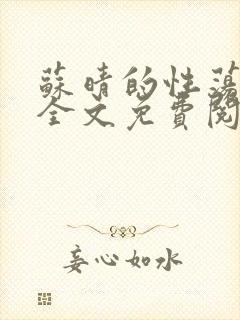 蘇晴的性蕩
全文免費閱
妄心如水